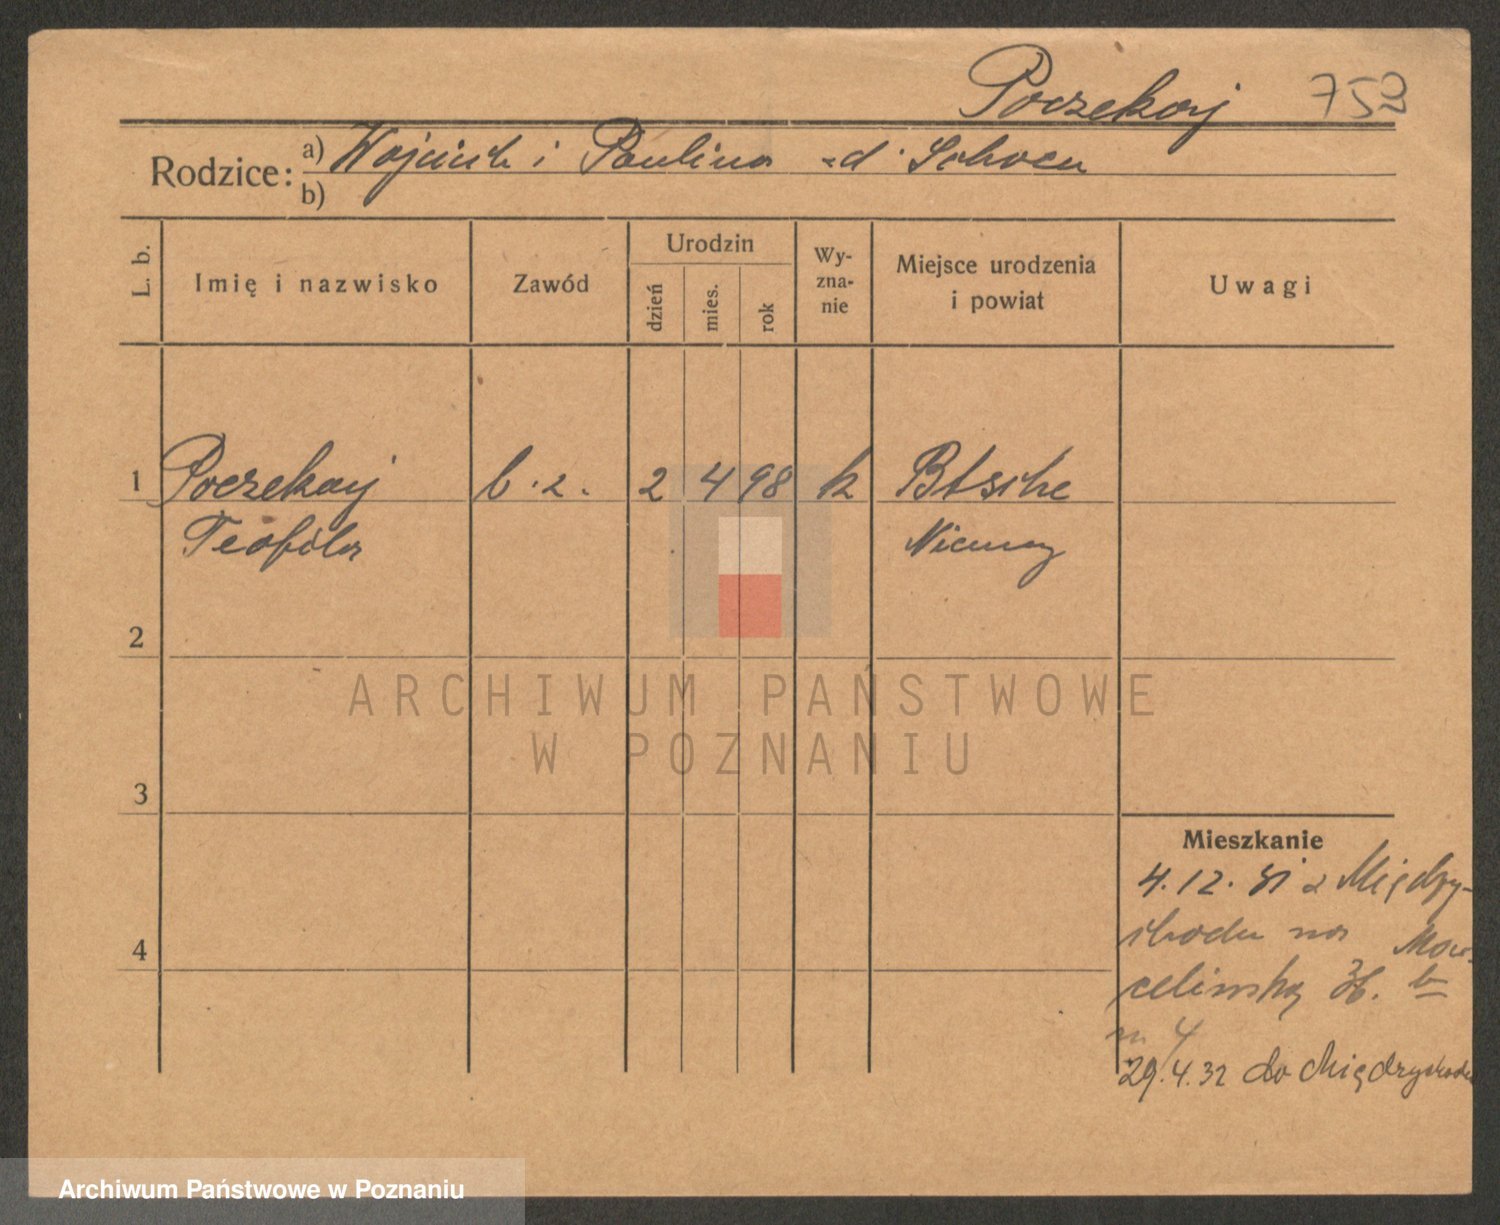 Poczekaj 752
Rodzice: a) Wojciech i Paulina z d. Schocen
b)
L. b.
Imię i nazwisko
Zawód
Urodzin
dzień
mies.
rok
Wy-
zna-
nie
Miejsce urodzenia
i powiat
Uwagi
1 Poczekaj b. z. 2 4 98 k Btsche
Teofila Niemcy
2
3
4
ARCHIWUM PAŃSTWOWE
W POZNANIU
Mieszkanie
4.12.31 z Między-
chodu na Mar-
celińską 36. b
m 4
29.4.32 do Międzychodu
Archiwum Państwowe w Poznaniu